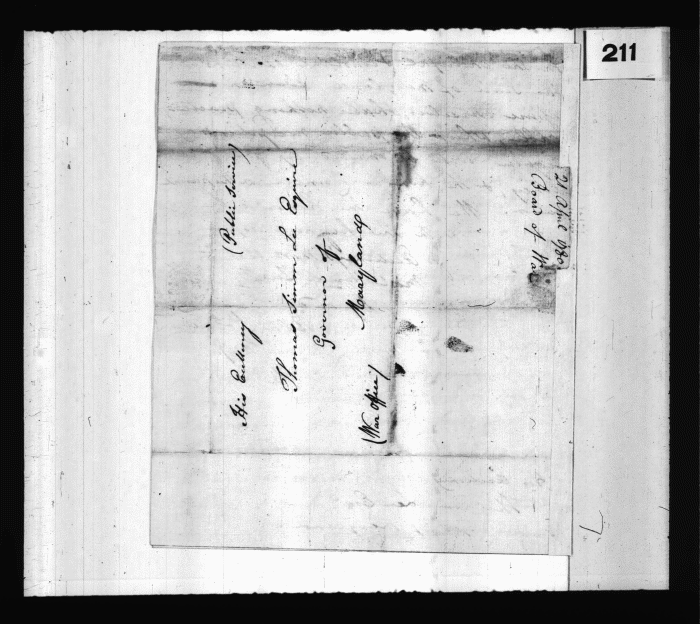 211
(Public Service)
His Excellency
Thomas Simm Lee Esquire
Governor of
Maryland
(War Office)
21 April 1780
Board of War